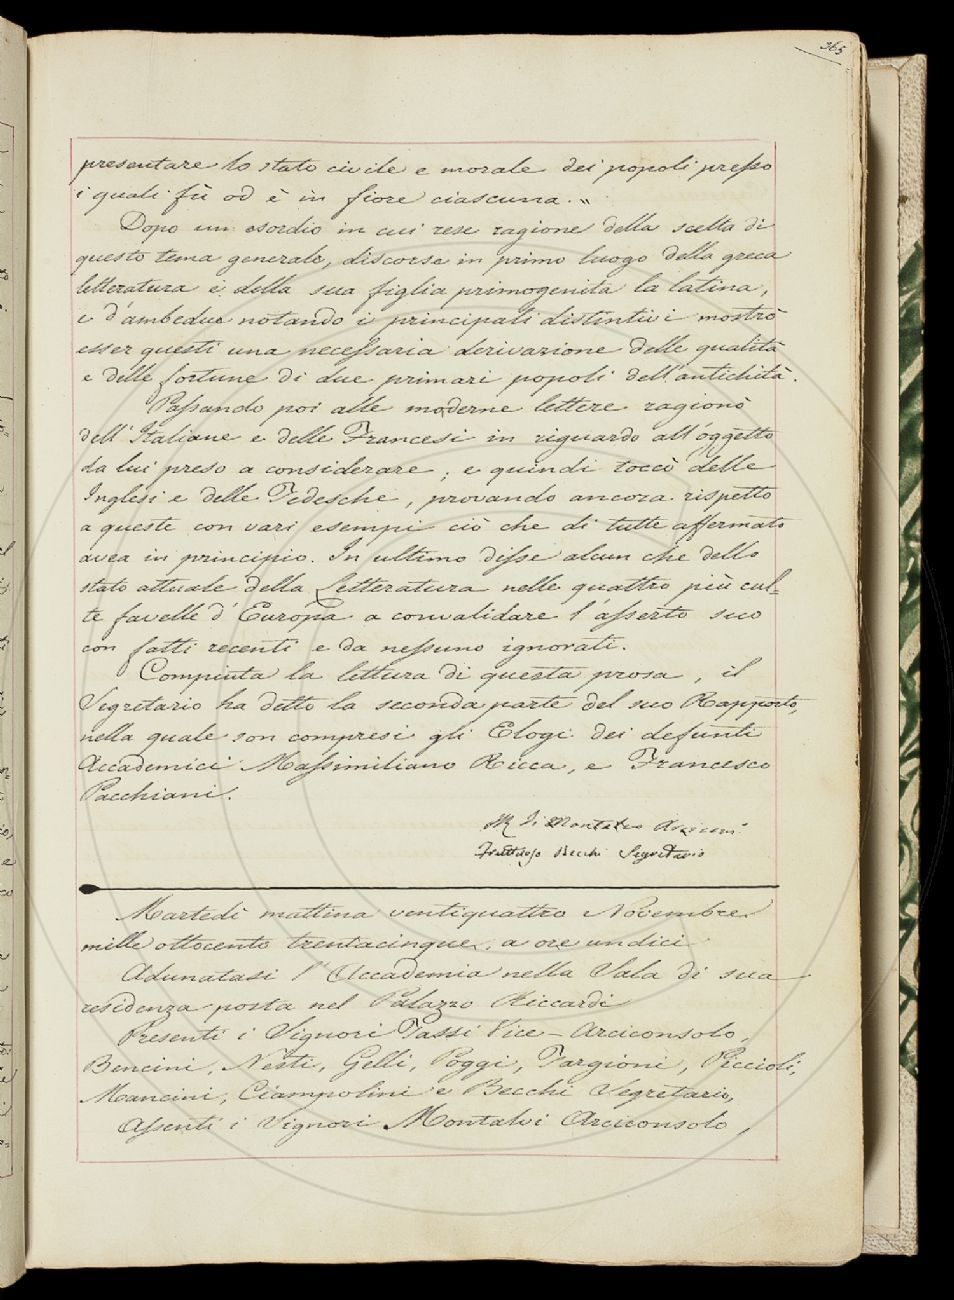 365
presentare lo stato civile e morale dei popoli presso
i quali fù od è in fiore ciascuna. „
Dopo un esordio in cui rese ragione della scelta di
questo tema generale, discorse in primo luogo della greca
letteratura e della sua figlia primogenita la latina,
e d'ambedue notando i principali distintivi mostrò
esser questi una necessaria derivazione delle qualità
e delle fortune di due primari popoli dell'antichità.
Passando poi alle moderne lettere ragionò
dell'Italiane e delle Francesi in riguardo all'oggetto
da lui preso a considerare; e quindi toccò delle
Inglesi e delle Tedesche, provando ancora rispetto
a queste con vari esempi ciò che di tutte affermato
avea in principio. In ultimo disse alcun che dello
stato attuale della Letteratura nelle quattro più cul=
te favelle d'Europa a convalidare l'asserto suo
con fatti recenti e da nessuno ignorati.
Compiuta la lettura di questa prosa, il
Segretario ha detto la seconda parte del suo Rapporto,
nella quale son compresi gli Elogi dei defunti
Accademici Massimiliano Ricca, e Francesco
Pacchiani.
Di Montalvo
Fruttuoso Becchi Segretario
Martedì mattina ventiquattro Novembre
mille ottocento trentacinque, a ore undici
Adunatasi l'Accademia nella Sala di sua
residenza posta nel Palazzo Riccardi
Presenti i Signori Tassi Vice-Arciconsolo,
Bencini, Nesti, Gelli, Poggi, Targioni, Piccioli,
Mancini, Ciampolini e Becchi Segretario,
Assenti i Signori Montalvi Arciconsolo,